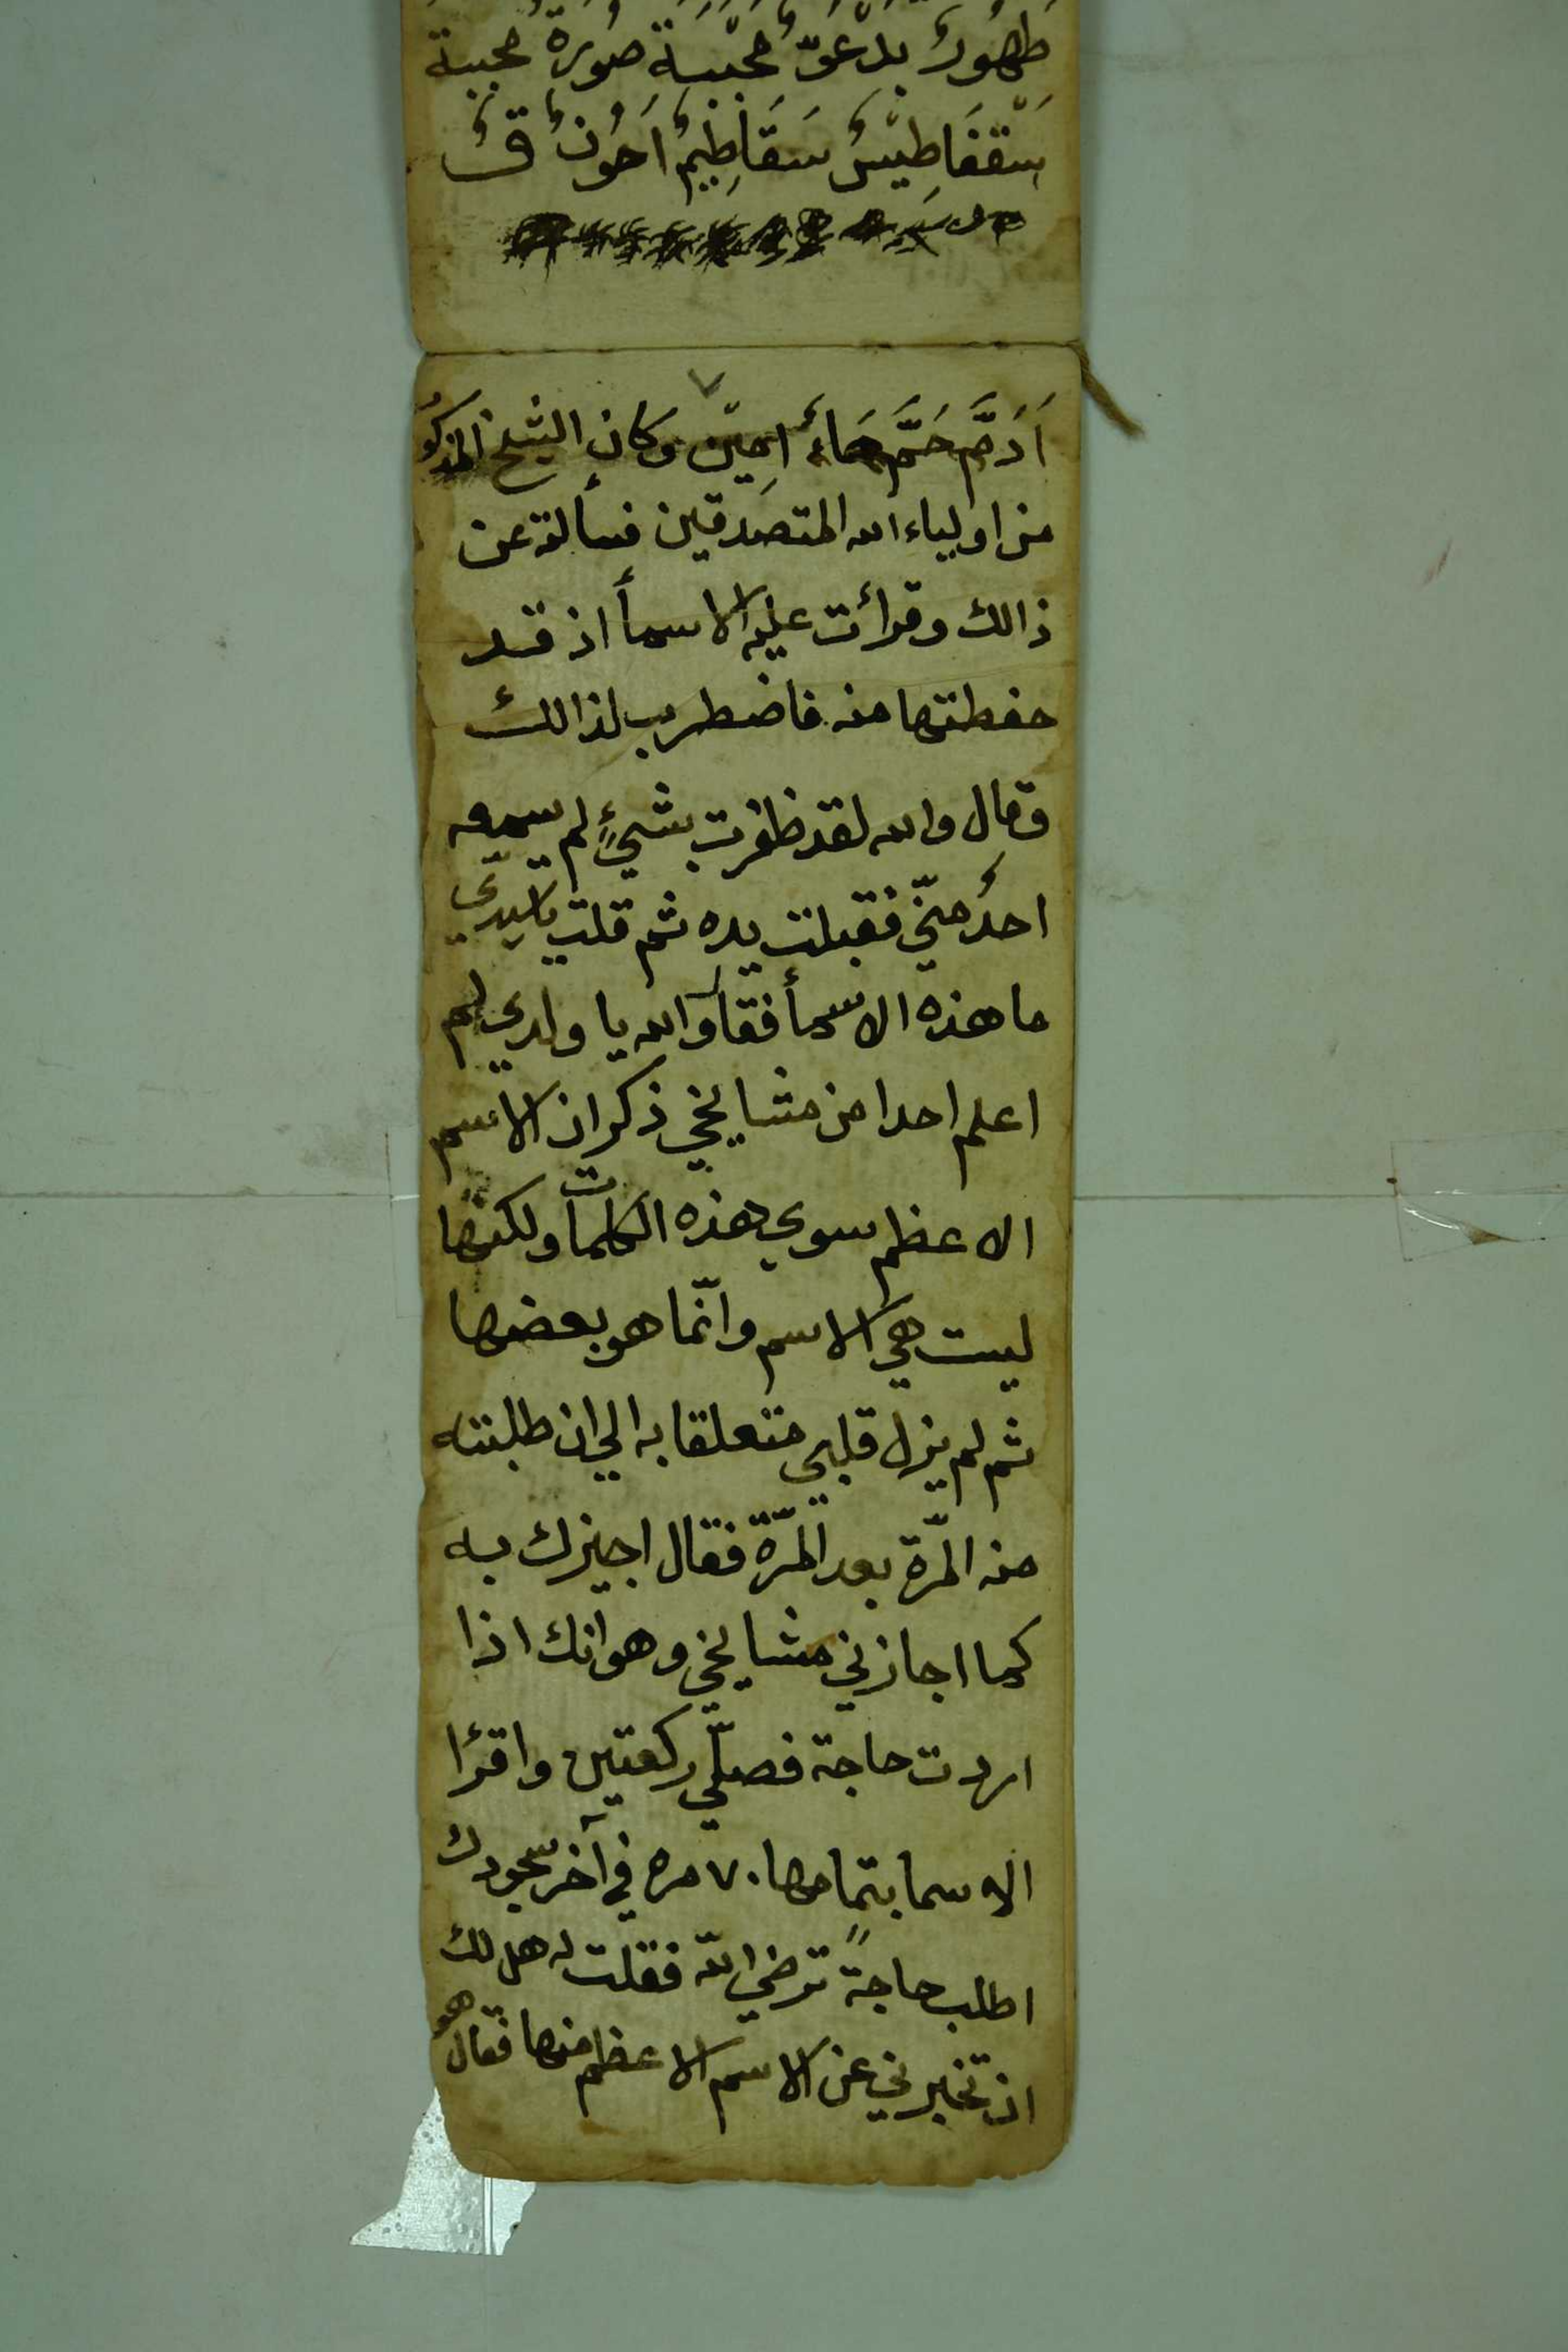 طهور بدعق محببة صورة محببة
سقفاطيس سقاطيم احون ق
اَدَمَّ حَمَّ هاء امين وكان الشيخ المذكور
من اولياء الله المتصدقين فسألته عن
ذالك وقرأت عليه الاسمأ اذ قد
حفطتها منه فاضطرب لذالك
وقال والله لقد ظفرت بشيءٍ لم يسمعه
احدُ منّي فقبلت يده ثم قلت يا سيدي
ما هذه الاسمأ فقال والله يا ولدي لم
اعلم احدا من مشايخي ذكر ان الاسم
الاعظم سوي هذه الكلمات ولكنها
ليست هي الاسم وانّما هو بعضها
ثم لم يزل قلبي متعلقا به الي ان طلبته
منه المرّة بعد المرّة فقال اجيزك به
كما اجازني مشايخي وهو انك اذا
اردت حاجة فصلّي ركعتين واقرٔا
الاسما بتمامها ٧٠ مره في آخر سجودك
اطلب حاجةً ترضي الله فقلت له هل لك
ان تخبرني عن الاسم الاعظم منها فقال هو